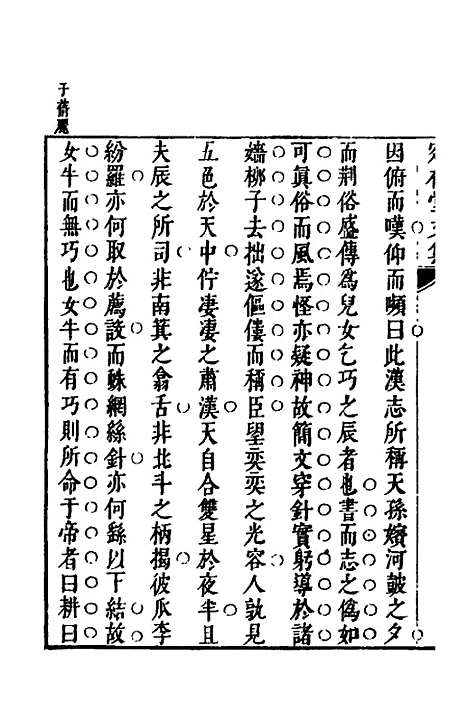 因俯而嘆仰而嚬曰此漢志所稱天孫嬪河鼓之夕
而荆俗盛傳爲兒女乞巧之辰者也書而志之僞如
可眞俗而風焉怪亦疑神故簡文穿針實躬導於諸
嬙桞子去拙遂傴僂而稱臣朢奕奕之光容人孰見
五色於天中佇凄凄之肅漢天自合雙星於夜半且
夫辰之所司非南箕之翕舌非北斗之柄揭彼瓜李
紛羅亦何取於薦設而蛛網絲針亦何繇以下結故
女牛而無巧也女牛而有巧則所命于帝者曰耕曰